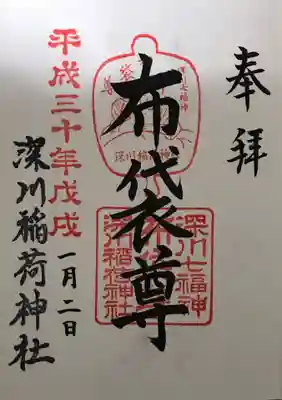 奉拝
布袋尊
深川七福神
深川稲荷神社
平成三十年戊戌
一月二日
深川稲荷神社